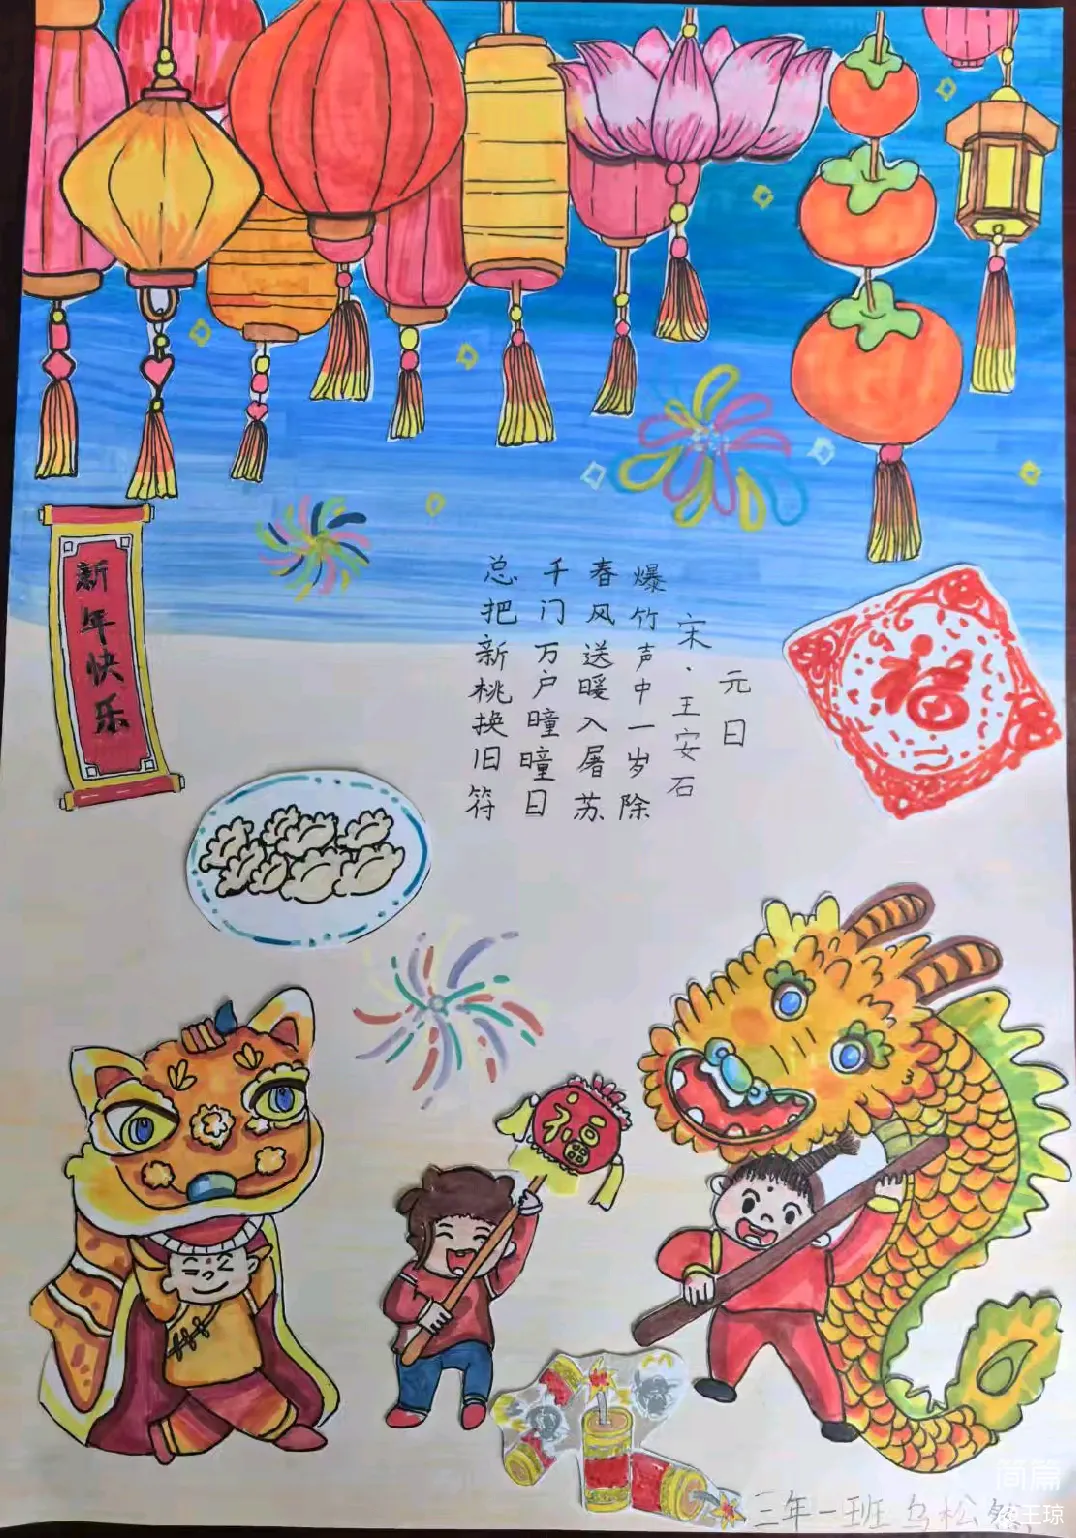 新年快乐
元日
宋·王安石
爆竹声中一岁除
春风送暖入屠苏
千门万户曈曈日
总把新桃换旧符
福
福
三年一班 乌松然
简篇
王琼